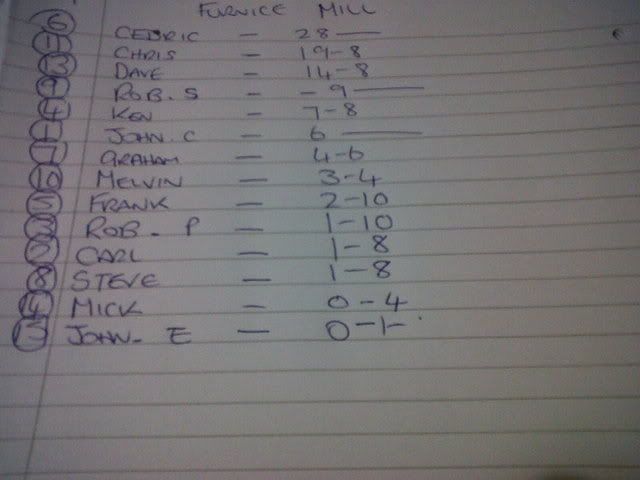 FURNICE MILL
6 CEDRIC — 28 —
CHRIS — 19-8
13 DAVE — 14-8
ROB. S — - 9 —
4 KEN — 7-8
JOHN. C — 6 —
GRAHAM — 4-6
10 MELVIN — 3-4
FRANK — 2-10
ROB. P — 1-10
CARL — 1-8
8 STEVE — 1-8
MICK — 0-4
JOHN- E — 0-1-